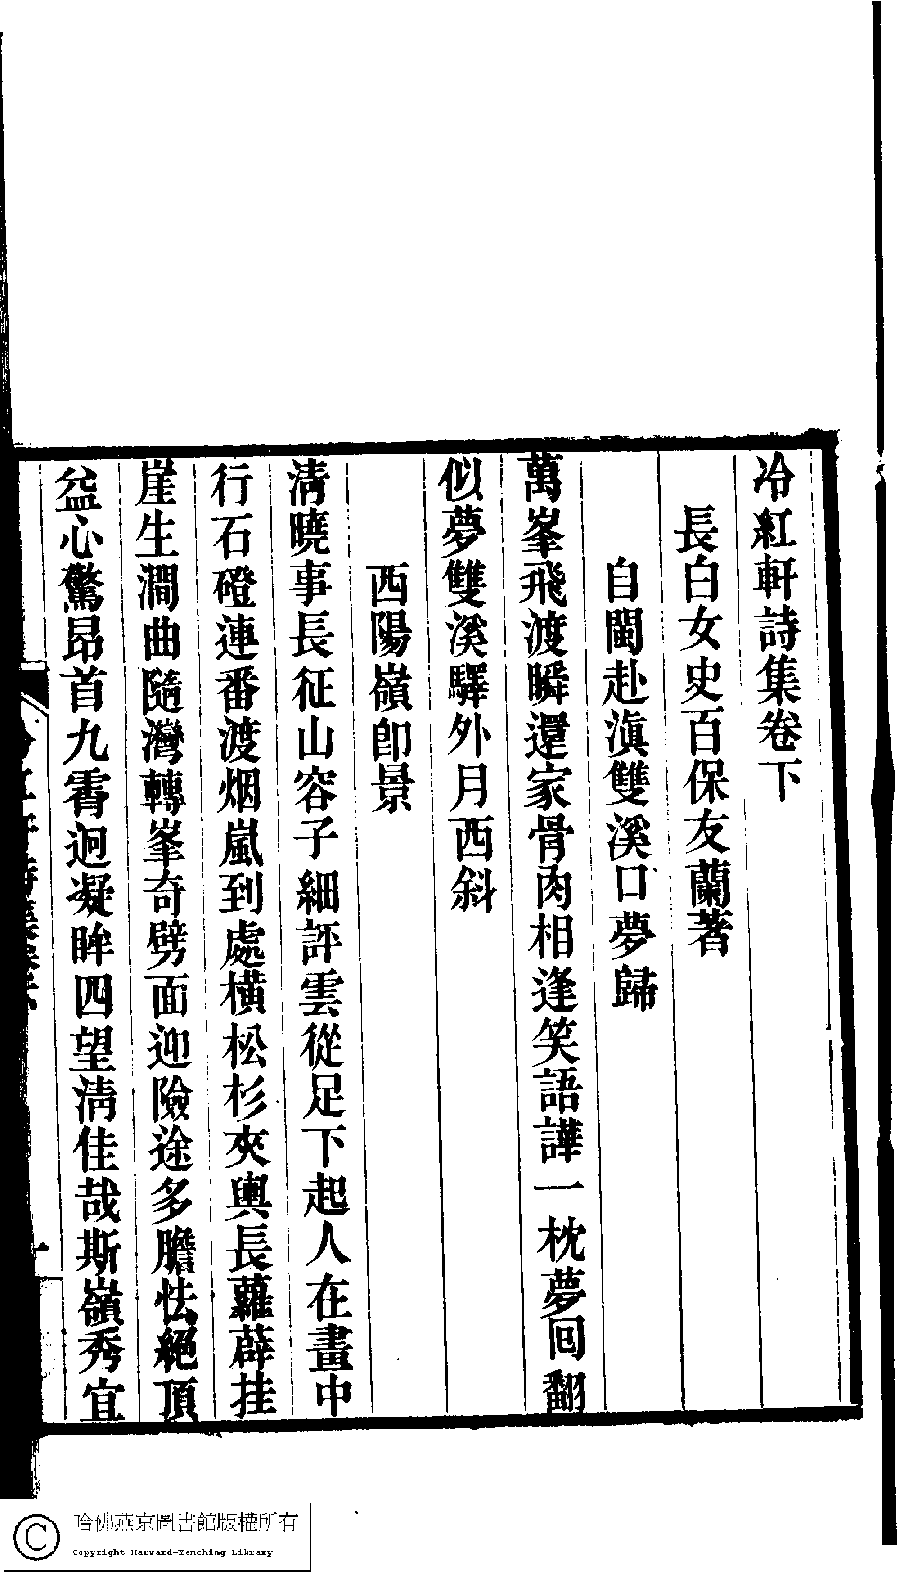 冷紅軒詩集卷下
長白女史百保友蘭著
自閩赴滇雙溪口夢歸
萬峯飛渡瞬還家骨肉相逢笑語譁一枕夢回翻
似夢雙溪驛外月西斜
西陽嶺卽景
淸曉事長征山容子細評雲從足下起人在畫中
行石磴連番渡烟嵐到處橫松杉夾輿長蘿薜挂
崖生澗曲隨灣轉峯奇劈面迎險途多膽怯絕頂
益心驚昂首九霄迥凝眸四望淸佳哉斯嶺秀宜
哈佛燕京圖書館版權所有
Copyright Harvard-Yenching Library